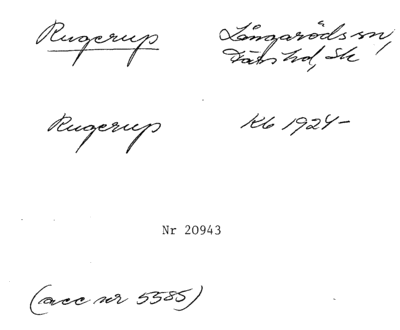 Rugerup
Långaröds sn,
Färs hd, Sk
Rugerup Kb 1924-
Nr 20943
(acc nr 5585)